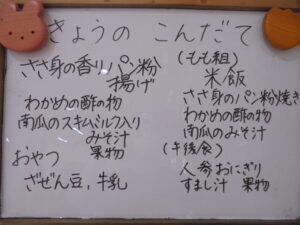 きょうの こんだて
ささ身の香りパン粉
揚げ
わかめの酢の物
南瓜のスキムミルク入り
みそ汁
果物
おやつ
ざぜん豆、牛乳
(もも組)
米飯
ささ身のパン粉焼き
わかめの酢の物
南瓜のみそ汁
(午後食)
人参おにぎり
すまし汁 果物